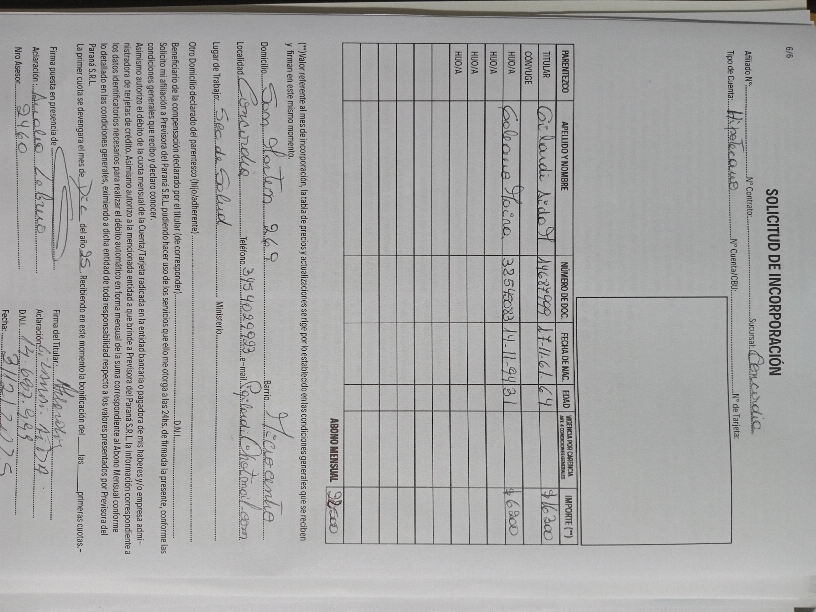 6/6
SOLICITUD DE INCORPORACIÓN
Afiliado Nº: Nº Contrato: Sucursal: Concordia
Tipo de Cuenta: Hipotecario Nº Cuenta/CBU: Nº de Tarjeta:
PARENTEZCO APELLIDO Y NOMBRE NÚMERO DE DOC. FECHA DE NAC. EDAD VIGENCIA POR CARENCIA IMPORTE (**)
TITULAR Gilardi Aida 14687999 17-11-61 64 $16300
CONYUGE
HIJO/A Galeano Moira 14-11-94 31 $6200
HIJO/A
HIJO/A
HIJO/A
ABONO MENSUAL
(**)Valor referente al mes de incorporación, la tabla de precios y actualizaciones se rige por lo establecido en las condiciones generales que se reciben
y firman en este mismo momento.
Domicilio: San Martin 269 Barrio: Microcentro
Localidad: Concordia Teléfono: 3454029923 e-mail:
Lugar de Trabajo: Sec de Salud Ministerio:
Otro Domicilio declarado del parentesco (hijo/adherente)
Beneficiario de la compensación declarado por el titular (de corresponder) D.N.I.
Solicito mi afiliación a Previsora del Paraná S.R.L. pudiendo hacer uso de los servicios que ello me otorga a las 24hs. de firmada la presente, conforme las
condiciones generales que recibo y declaro conocer.
Asimismo autorizo el débito de la cuota mensual de la Cuenta/Tarjeta radicada en la entidad bancaria o pagadora de mis haberes y/o empresa admi-
nistradora de tarjetas de crédito. Asimismo autorizo a la mencionada entidad a que brinde a Previsora del Paraná S.R.L. la información correspondiente a
los datos identificatorios necesarios para realizar el débito automático en forma mensual de la suma correspondiente al Abono Mensual conforme
lo detallado en las condiciones generales, eximiendo a dicha entidad de toda responsabilidad respecto a los valores presentados por Previsora del
Paraná S.R.L.
La primer cuota se devengara el mes de Dic del año 25. Recibiendo en este momento la bonificación del las primeras cuotas.-
Firma puesta en presencia de Firma del Titular:
Aclaración: Aclaración:
Nro Asesor: 2460 D.N.I.
Fecha: